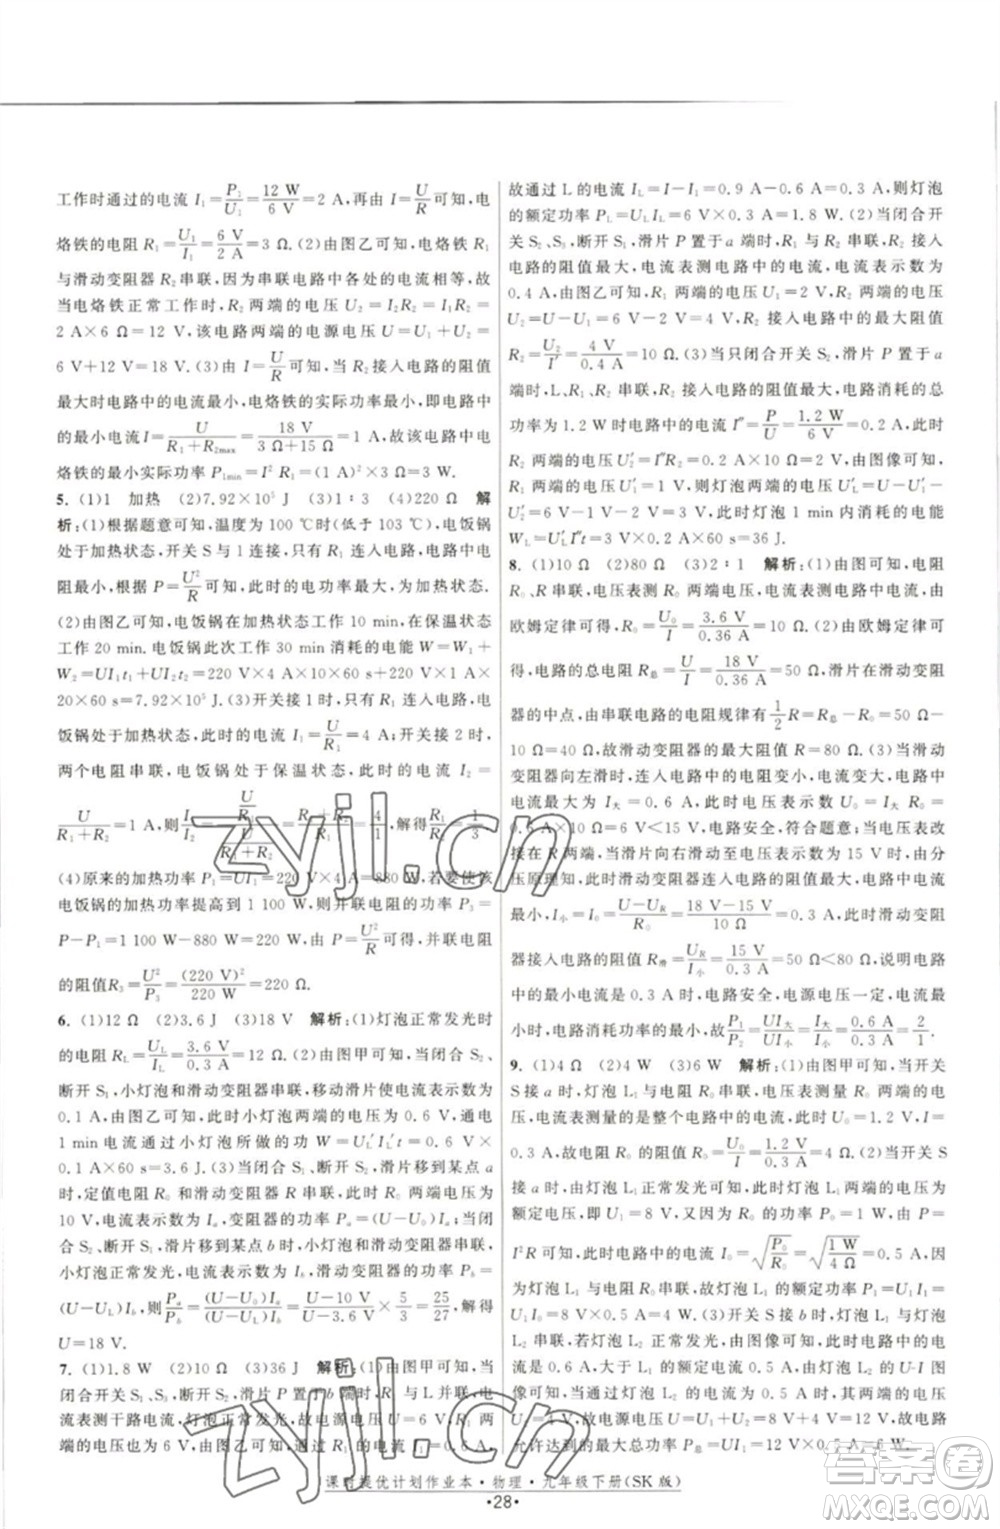 工作时通过的电流 I₁=P₁/U₁=12 W/6 V=2 A,再由 I=U/R 可知,电
烙铁的电阻 R₁=U₁/I₁=6 V/2 A=3 Ω. (2)由图乙可知,电烙铁 R₁
与滑动变阻器 R₂ 串联,因为串联电路中各处的电流相等,故
当电烙铁正常工作时,R₂ 两端的电压 U₂=I₂R₂=I₁R₂=
2 A×6 Ω=12 V,该电路两端的电源电压 U=U₁+U₂=
6 V+12 V=18 V. (3)由 I=U/R 可知,当 R₂ 接入电路的阻值
最大时电路中的电流最小,电烙铁的实际功率最小,即电路中
的最小电流 I=U/(R₁+R₂max)=18 V/(3 Ω+15 Ω)=1 A,故该电路中电
烙铁的最小实际功率 P₁min=I² R₁=(1 A)²×3 Ω=3 W.
5. (1)1 加热 (2)7.92×10⁵ J (3)1∶3 (4)220 Ω 解
析:(1)根据题意可知,温度为 100 ℃时(低于 103 ℃),电饭锅
处于加热状态,开关 S 与 1 连接,只有 R₁ 连入电路,电路中电
阻最小,根据 P=U²/R 可知,此时的电功率最大,为加热状态.
(2)由图乙可知,电饭锅在加热状态工作 10 min,在保温状态
工作 20 min. 电饭锅工作 30 min 消耗的电能 W=W₁+
W₂=UI₁t₁+UI₂t₂=220 V×4 A×10×60 s+220 V×1 A×
20×60 s=7.92×10⁵ J. (3)开关接 1 时,只有 R₁ 连入电路,电
饭锅处于加热状态,此时的电流 I₁=U/R₁=4 A;开关接 2 时,
两个电阻串联,电饭锅处于保温状态,此时的电流 I₂=
U/(R₁+R₂)=1 A,则 I₁/I₂=(U/R₁)/(U/(R₁+R₂))=(R₁+R₂)/R₁=4/1,解得 R₁/R₂=1/3.
(4)原来的加热功率 P₁=UI₁=220 V×4 A=880 W,若要使该
电饭锅的加热功率提高到 1 100 W,则并联电阻的功率 P₃=
P-P₁=1 100 W-880 W=220 W,由 P=U²/R 可得,并联电阻
的阻值R₃=U²/P₃=(220 V)²/220 W=220 Ω.
6. (1)12 Ω (2)3.6 J (3)18 V 解析:(1)灯泡正常发光时
的电阻 R_L=U_L/I_L=3.6 V/0.3 A=12 Ω. (2)由图甲可知,闭合开关 S₂、
断开 S₁,小灯泡和滑动变阻器串联,移动滑片使电流表示数为
0.1 A 时,由图乙可知,此时小灯泡两端的电压为 0.6 V,通电
1 min 电流通过小灯泡所做的功 W=U_L′I_L′t=0.6 V×
0.1 A×60 s=3.6 J. (3)当闭合开关 S₁、断开 S₂,滑片移到某点 a
时,定值电阻 R₀ 和滑动变阻器 R 串联,此时 R₀ 两端电压为
10 V,电流表示数为 Iₐ,变阻器的功率 Pₐ=(U-U₀)Iₐ;当闭
合开关 S₂、断开 S₁,滑片移到某点 b 时,小灯泡和滑动变阻器串联,
小灯泡正常发光,电流为 I_b,滑动变阻器的功率 P_b=
(U-U_L)I_b,则 Pₐ/P_b=(U-U₀)Iₐ/(U-U_L)I_b=(U-10 V)/(U-3.6 V)×5/3=25/27,解得
U=18 V.
7. (1)1.8 W (2)10 Ω (3)36 J 解析:(1)由图甲可知,当
闭合开关 S、S₁、断开 S₂,滑片 P 置于 a 端时,R₁ 与 L 并联,电
流表测干路电流,灯泡正常发光,故电源电压 U=6 V,R₁ 两
端的电压为 6 V,由图乙可知,通过 R₁ 的电流 I₁=0.6 A,
故通过 L 的电流 I_L=I-I₁=0.9 A-0.6 A=0.3 A,则灯泡
的额定功率 P_L=U_LI_L=6 V×0.3 A=1.8 W. (2)当闭合开
关 S、S₁,断开 S₂,滑片 P 置于 a 端时,R₁、R₂ 串联,R₂ 接入
电路的阻值最大,电流表测电路中的电流,电流表示数为
0.4 A,由图乙可知,R₁ 两端的电压为 2 V,R₂ 两端的电压
U₂=U-U₁=6 V-2 V=4 V,R₂ 接入电路中的最大阻值
R₂=U₂/I′=4 V/0.4 A=10 Ω. (3)当只闭合开关 S₂,滑片 P 置于 a
端时,L、R₁、R₂ 串联,R₂ 接入电路的阻值最大,电路消耗的总
功率为 1.2 W 时电路中的电流 I″=P/U=1.2 W/6 V=0.2 A,此时
R₂ 两端的电压 U₂′=I″R₂=0.2 A×10 Ω=2 V,由图像可知,
R₁ 两端的电压 U₁′=1 V,则灯泡两端电压 U_L′=U-U₁′-
U₂′=6 V-1 V-2 V=3 V,此时灯泡 1 min 内消耗的电能
W_L=U_L′I″t=3 V×0.2 A×60 s=36 J.
8. (1)10 Ω (2)80 Ω (3)2∶1 解析:(1)由图可知,电
阻 R、R₀ 串联,电压表测 R₀ 两端电压,电流表测电路中电流,
由欧姆定律可得 R₀=U₀/I=3.6 V/0.36 A=10 Ω. (2)由欧姆定律可
得,电路的总电阻 R总=U/I=18 V/0.36 A=50 Ω,滑片在滑动变阻
器的中点,由串联电路的电阻规律有 1/2 R=R总-R₀=50 Ω-
10 Ω=40 Ω,故滑动变阻器的最大阻值 R=80 Ω. (3)当滑动
变阻器向左滑时,连入电路中的电阻变小,电流变大,电路中
的最大电流为 I大=0.6 A,此时电压表示数 U₀=I大 R₀=
0.6 A×10 Ω=6 V<15 V,电路安全,符合题意;当电压表改
接在 R 两端,当滑片向右滑动至电压为 15 V 时,由分
压原理知,此时滑动变阻器连入电路的阻值最大,电路中的电流
最小,I小=(U-U_R)/R₀=(18 V-15 V)/10 Ω=0.3 A,此时滑动变阻
器接入电路的阻值 R滑=U_R/I小=15 V/0.3 A=50 Ω<80 Ω,说明电路
中的最小电流是 0.3 A,电路安全,电源电压一定,电流最
小时,电路消耗功率的最小,故 P₁/P₂=UI大/UI小=0.6 A/0.3 A=2/1.
9. (1)4 Ω (2)4 W (3)6 W 解析:(1)由图甲可知,当开关
S接 a 时,R₀ 与电阻 R 串联,电压表测量 R₀ 两端的电压,
电流表测量的是整个电路中的电流,所以 U₀=1.2 V,I=
0.3 A,故定值电阻 R₀ 的阻值 R₀=U₀/I=1.2 V/0.3 A=4 Ω. (2)当开关 S
接 a 时,由灯泡 L₁ 正常发光可知,此时灯泡 L₁ 的电压为
额定电压,即 U₁=8 V,又因为 R₀ 的功率 P₀=1 W,由 P=
I²R 可知,此时电路中的电流 I=√(P₀/R₀)=√(1 W/4 Ω)=0.5 A,
因为灯泡 L₁ 与电阻 R₀ 串联,故灯泡 L₁ 的额定功率 P₁=U₁I₁=
U₁I₀=8 V×0.5 A=4 W. (3)开关 S接 b 时,灯泡 L₁ 和灯泡
L₂ 串联,若灯泡 L₂ 正常发光,由图像可知,电路中的电流大
于 0.5 A,大于 L₁ 的额定电流,故灯泡 L₁ 正常发光,电路中
的电流为 0.5 A,此时灯泡 L₂ 的电流为 0.5 A,由 L₂ 的 U-I 图
像可知,灯泡 L₂ 两端的电压为 4 V,由串联电路中电压规律可
知,故电源电压 U=U₁+U₂=8 V+4 V=12 V,故电路
允许达到的最大功率 P总=UI₁=12 V×0.5 A=6 W.
课时提优计划作业本·物理·九年级下册(SK版)
·28·
zyjl.cn
zyjl.cn
作业精灵